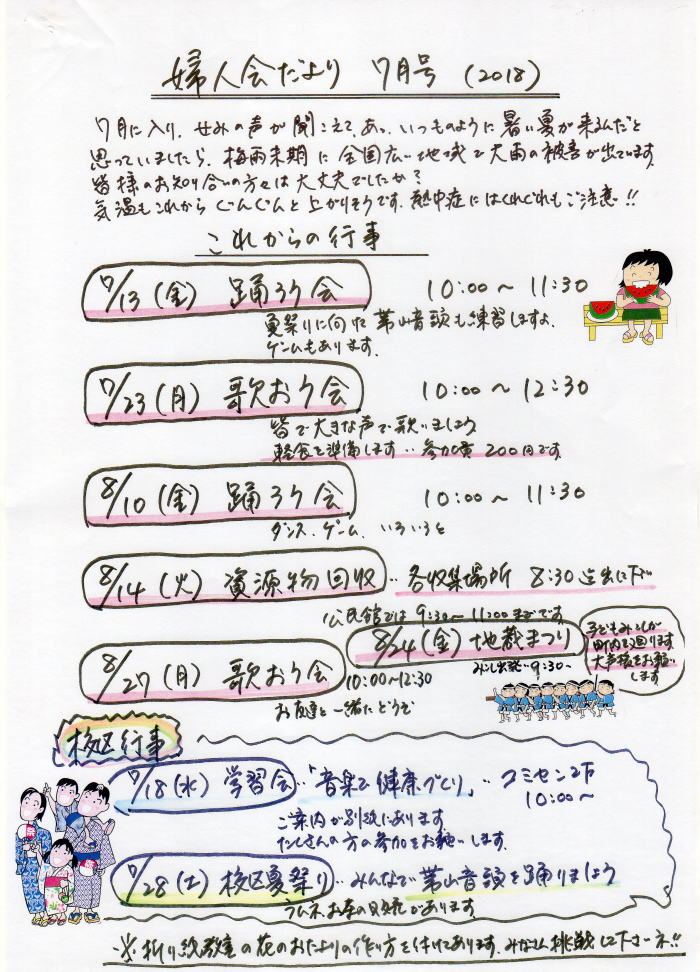 婦人会だより 7月号 (2018)
7月に入り、せみの声が聞こえて、あっ、いつものように暑い夏が来るんだと
思っていましたら、梅雨末期に全国広い地域で大雨の被害が出ています。
皆様のお知り合いの方々は大丈夫でしたか?
気温もこれからぐんぐんと上がりそうです。熱中症にはくれぐれもご注意!!
これからの行事
7/13(金) 踊ろう会 10:00~11:30
夏祭りに向けて 葦山音頭も練習しますよ。
ゲームもあります。
7/23(月) 歌おう会 10:00~12:30
皆で大きな声で歌いましょう
軽食を準備します‥参加費200円です
8/10(金) 踊ろう会 10:00~11:30
ダンス、ゲーム、いろいろと
8/14(火) 資源物回収‥各収集場所 8:30迄出に下さい
公民館では9:30~11:00までです
8/24(金) 地蔵まつり
みこし出発9:30~
子どもみこしが
町内を廻ります
大声援をお願い
します
8/27(月) 歌おう会 10:00~12:30
お友達と一緒にどうぞ
校区行事
7/18(水) 学習会‥「音楽で健康づくり」‥コミセン2F
10:00~
ご案内が別紙にあります
たくさんの方の参加をお願いします。
7/28(土) 校区夏祭り‥みんなで葦山音頭を踊りましょう
ラムネ、お茶の販売があります
※折り紙教室の花のおたよりの作り方を付けてあります。みなさん挑戦して下さーネ!!